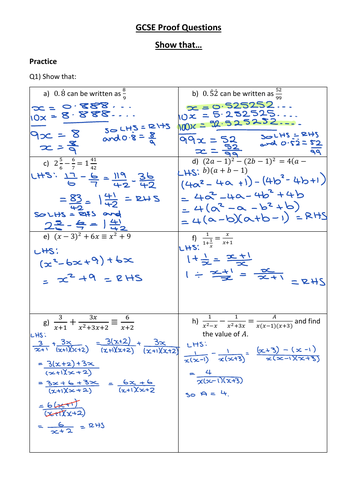 GCSE Proof Questions
Show that…
Practice
Q1) Show that:
a) 0.8̇ can be written as 8/9
x = 0.888....
10x = 8.888....
9x = 8
x = 8/9
so LHS = RHS
and 0.8̇ = 8/9
b) 0.5̇2̇ can be written as 52/99
x = 0.525252...
10x = 5.252525...
100x = 52.525252...
99x = 52
x = 52/99
so LHS = RHS
and 0.5̇2̇ = 52/99
c) 2 5/6 − 6/7 = 1 41/42
LHS:
17/6 − 6/7 = 119/42 − 36/42
= 83/42 = 1 41/42 = RHS
So LHS = RHS and
2 5/6 − 6/7 = 1 41/42
d) (2a − 1)² − (2b − 1)² = 4(a −
b)(a + b − 1)
LHS:
(4a² − 4a + 1) − (4b² − 4b + 1)
= 4a² − 4a − 4b² + 4b
= 4(a² − a − b² + b)
= 4(a − b)(a + b − 1) = RHS
e) (x − 3)² + 6x ≡ x² + 9
LHS:
(x² − 6x + 9) + 6x
= x² + 9 = RHS
f) 1/(1 + 1/x) = x/(x+1)
LHS:
1 + 1/x = (x+1)/x
1 ÷ (x+1)/x = x/(x+1) = RHS
g) 3/(x+1) + 3x/(x²+3x+2) ≡ 6/(x+2)
LHS:
3/(x+1) + 3x/((x+1)(x+2)) = 3(x+2)/((x+1)(x+2)) + 3x/((x+1)(x+2))
= (3(x+2) + 3x)/((x+1)(x+2))
= (3x + 6 + 3x)/((x+1)(x+2)) = (6x + 6)/((x+1)(x+2))
= 6(x+1)/((x+1)(x+2))
= 6/(x+2) = RHS
h) 1/(x²−x) − 1/(x²+3x) = A/(x(x−1)(x+3)) and find
the value of A.
LHS:
1/(x(x−1)) − 1/(x(x+3)) = ((x+3) − (x−1))/(x(x−1)(x+3))
= 4/(x(x−1)(x+3))
so A = 4.